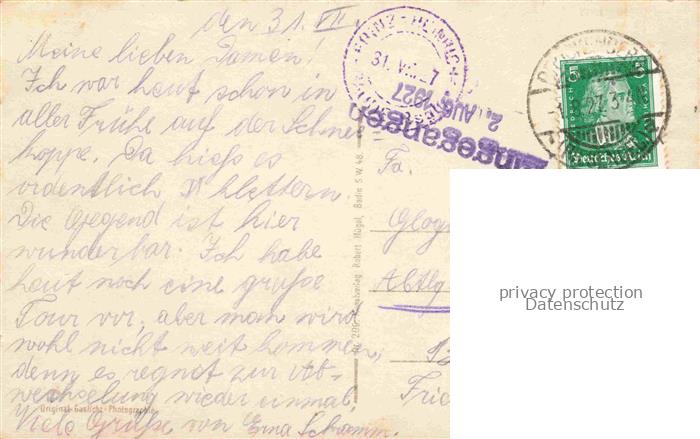 den 31. VII.
Meine lieben Damen!
Ich war heut schon in
aller Frühe auf der Schnee
koppe. Da hieß es
ordentlich klettern.
Die Gegend ist hier
wunderbar. Ich habe
heut noch eine große
Tour vor, aber man wird
wohl nicht weit kommen,
denn es regnet zur Ab-
wechselung wieder einmal.
Viele Grüße von Erna Schramm.
Original-Gaslicht-Photographie
Robert Hügel, Berlin S.W. 48.
PRINZ-HEINRICH-
31. VII. 27
2. AUG. 1927
Eingegangen
5 5
Deutsches Reich
Fa.
Glog
Abtlg
Frie
privacy protection
Datenschutz